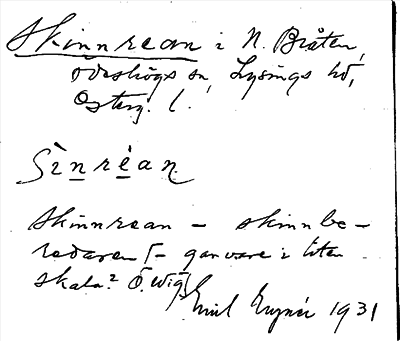 Skinnrean i N. Bråten,
Ödeshögs sn, Lysings hd,
Österg. l.
Sìnréan
Skinnrean – skinnbe-
redaren (– garvare i liten
skala? Ö. Wig)
Emil 1931